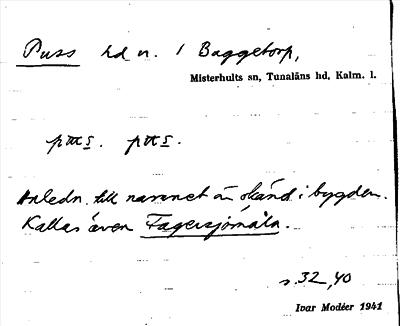 Puss hd n. 1 Baggetorp,
Misterhults sn, Tunaläns hd, Kalm. l.
Anledn. till namnet är okänd i bygden.
Kallas även Fagersjömåla.
s. 32, 40
Ivar Modéer 1941